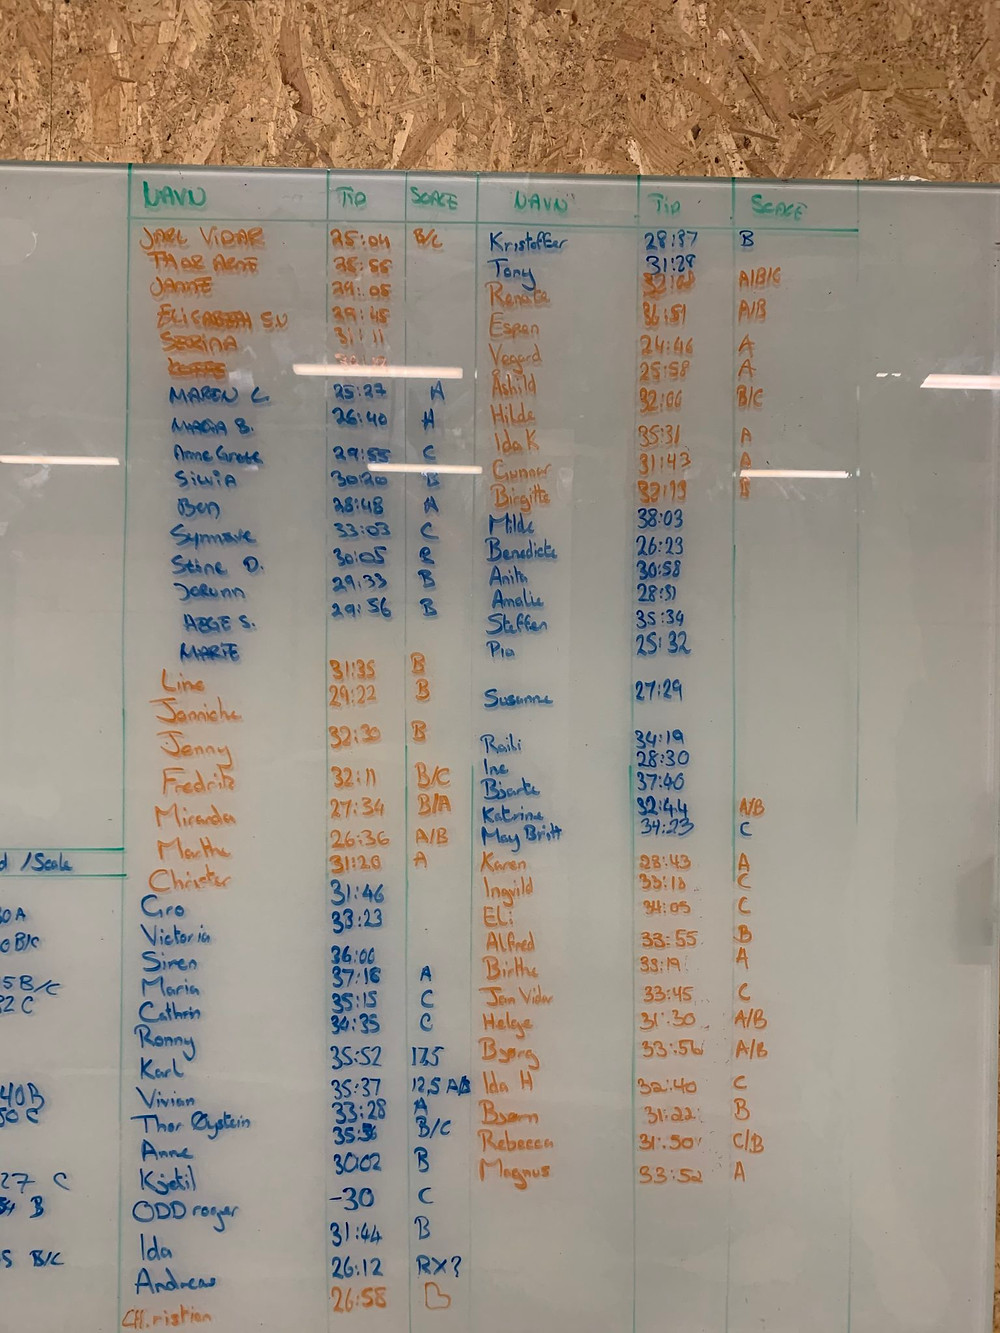 NAVN TID SCALE
JARL VIDAR 25:04 B/C
THOR ARNE
JANNE 29:05
ELISABETH S.U 29:45
SERINA 31:11
MAREN L 25:27 A
MARIA B. 26:40 A
Anne Grete 29:55 C
SILVIA 30:20 B
Ben 28:48 A
Synnøve 33:03 C
Stine O. 30:05 B
Jorunn 29:33 B
HEGE S. 29:56 B
MARTE
Line 31:35 B
Jannicke 29:22 B
Jenny 32:30 B
Fredrik 32:11 B/C
Miranda 27:34 B/A
Marthe 26:36 A/B
Christer 31:20 A
Gro 31:46
Victoria 33:23
Siren 36:00
Maria 37:16 A
Cathrin 35:15 C
Ronny 34:35 C
Karl 35:52 17,5
Vivian 35:37 12,5 A/B
Thor Øystein 33:28 A
Anne 35:36 B/C
Kjetil 30:02 B
ODD roger -30 C
Ida 31:44 B
Andreas 26:12 RX?
CH.ristian 26:58 B
NAVN TID SCALE
Kristoffer 28:37 B
Tony 31:29
Renate 32:08 A/B/C
Espen 36:51 A/B
Vegard 24:46 A
Åshild 25:58 A
Hilde 32:00 B/C
Ida K 35:31 A
Gunnar 31:43 A
Birgitte 32:13 B
Milde 38:03
Benedicte 26:23
Anita 30:58
Amalie 28:51
Steffen 35:34
Pia 25:32
Susanne 27:29
Raili 34:19
Ine 28:30
Bjarte 37:40
Katrine 32:44 A/B
May Britt 34:23 C
Karen 28:43 A
Ingvild 33:13 C
Eli 34:05 C
Alfred 33:55 B
Birthe 33:19 A
Jan Vidar 33:45 C
Helge 31:30 A/B
Bjørg 33:56 A/B
Ida H 32:40 C
Bjørn 31:22 B
Rebecca 31:50 C/B
Magnus 33:52 A
d /Scale
0 A
0 B/C
5 B/C
32 C
40 B
50 C
27 C
B
5 B/C